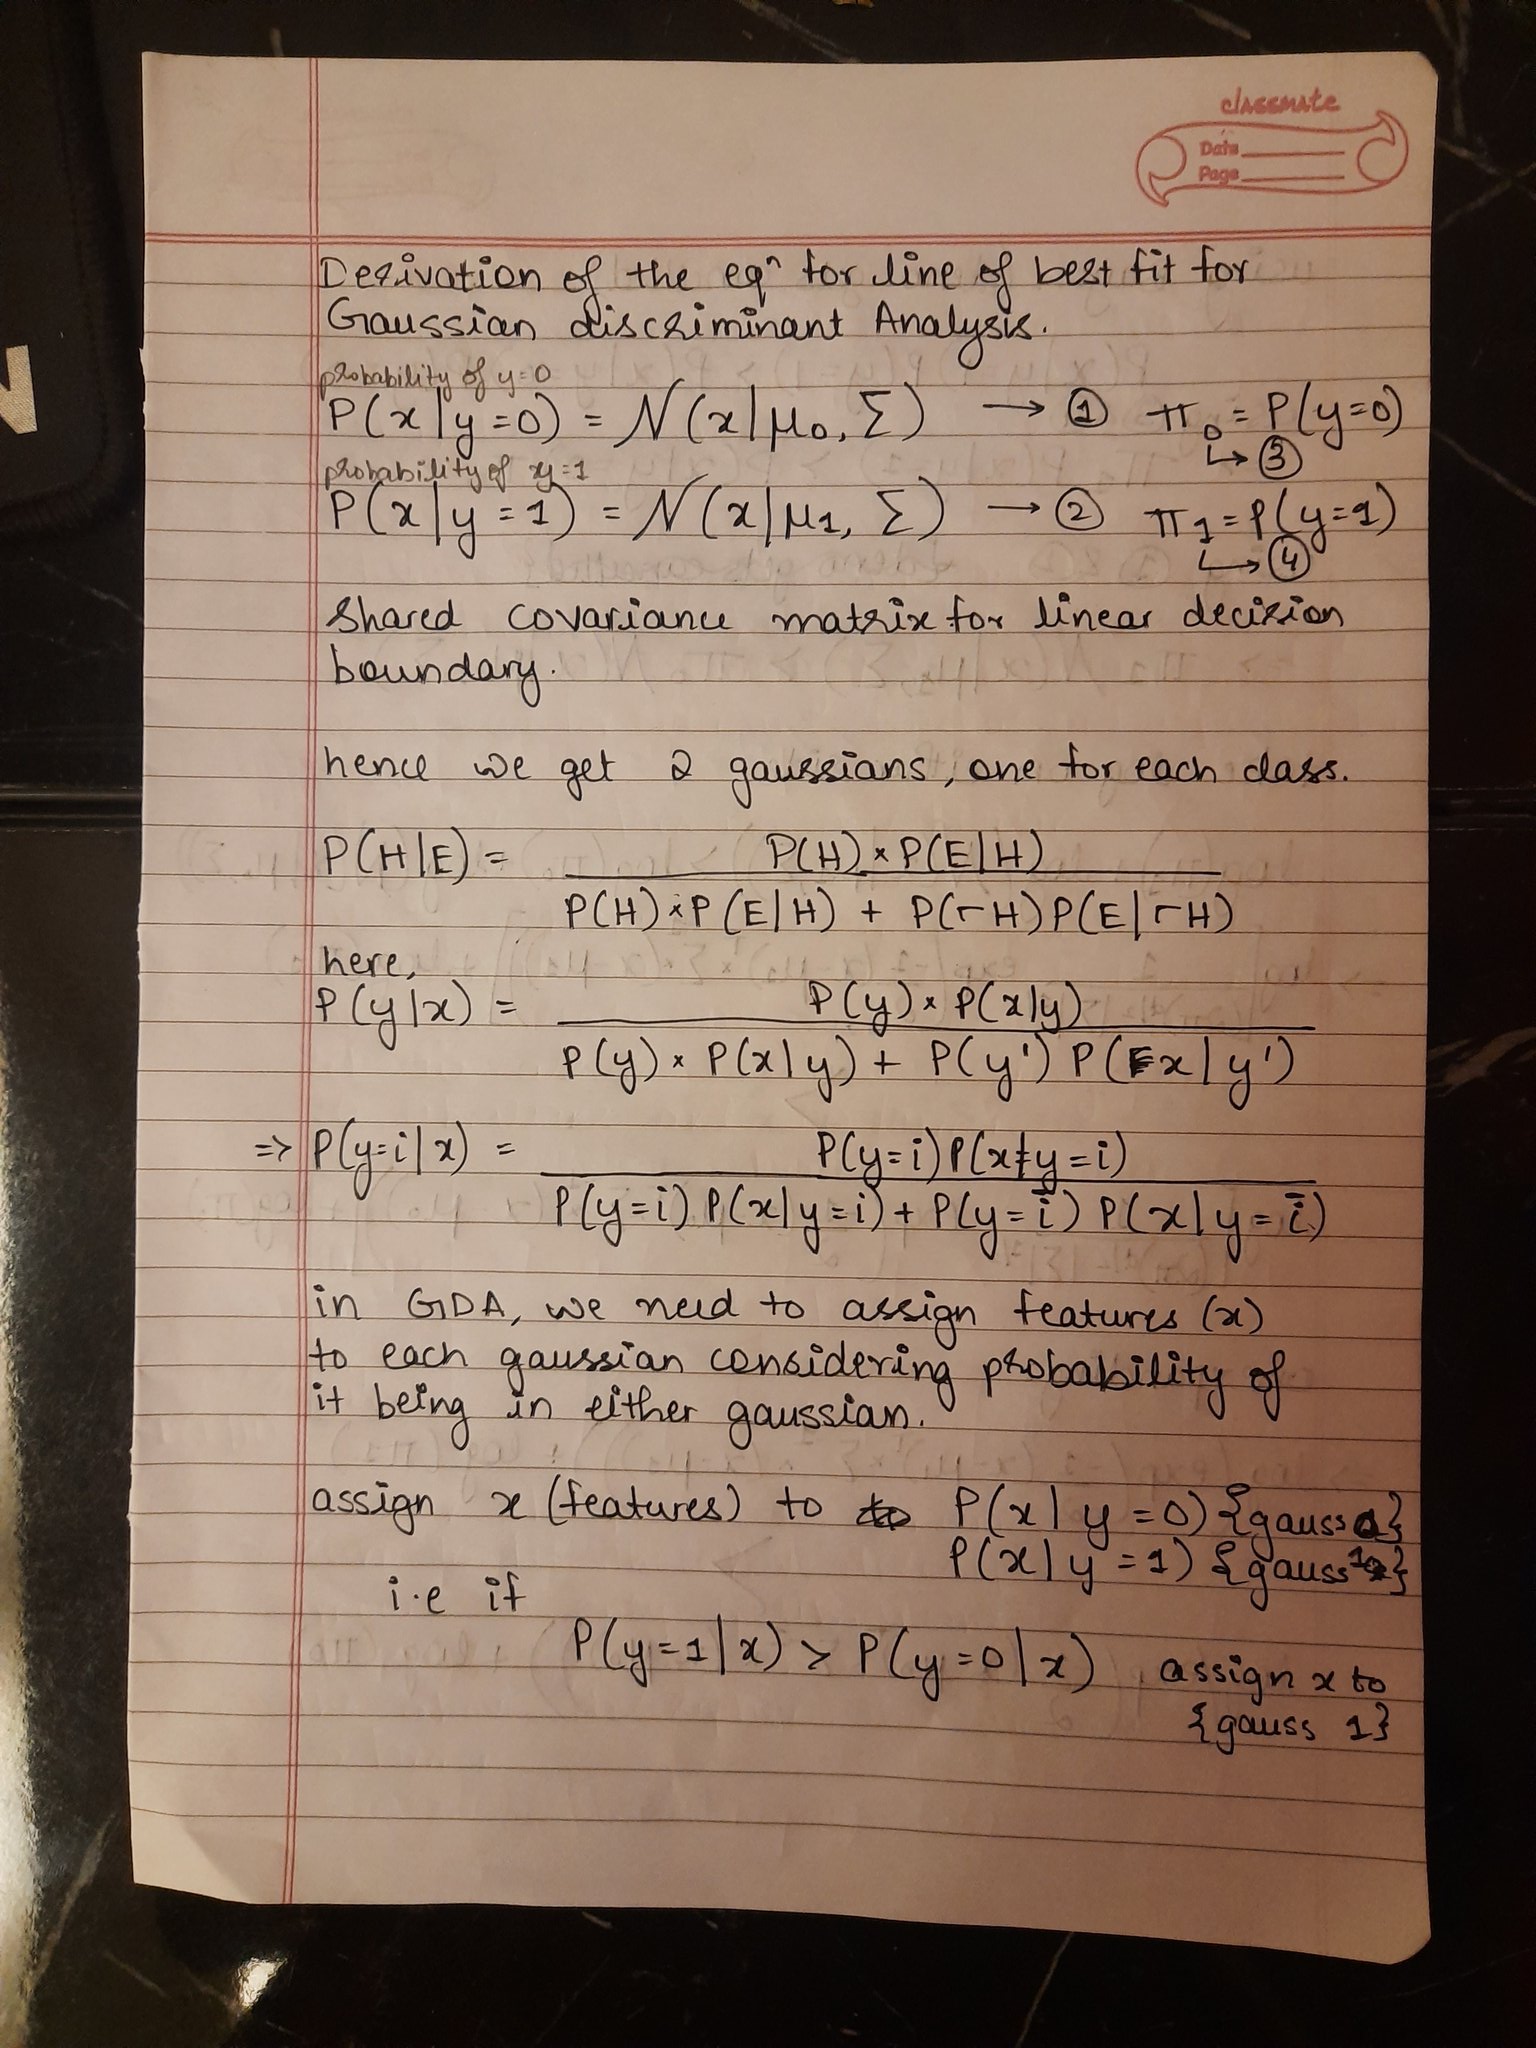 classmate
Date
Page
Derivation of the eqⁿ for line of best fit for
Gaussian discriminant Analysis.
probability of y=0
P(x|y=0) = N(x|μ₀, Σ) → ① π₀ = P(y=0)
↳ ③
probability of xy=1
P(x|y=1) = N(x|μ₁, Σ) → ② π₁ = P(y=1)
↳ ④
Shared covariance matrix for linear decision
boundary.
hence we get 2 gaussians, one for each class.
P(H|E) = P(H) × P(E|H)
P(H) × P(E|H) + P(¬H)P(E|¬H)
here,
P(y|x) = P(y) × P(x|y)
P(y) × P(x|y) + P(y') P(x|y')
=> P(y=i|x) = P(y=i)P(x|y=i)
P(y=i) P(x|y=i) + P(y=i̅) P(x|y=i̅)
in GDA, we need to assign features (x)
to each gaussian considering probability of
it being in either gaussian.
assign x (features) to P(x|y=0) {gauss 0}
P(x|y=1) {gauss 1}
i.e if
P(y=1|x) > P(y=0|x) assign x to
{gauss 1}